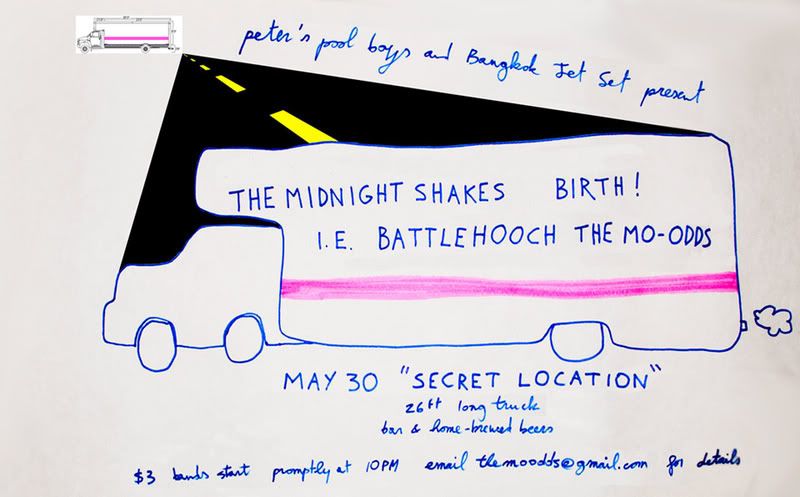 peter's pool boys and Bangkok Jet Set present
THE MIDNIGHT SHAKES BIRTH!
I.E. BATTLEHOOCH THE MO-ODDS
MAY 30 "SECRET LOCATION"
26ft long truck
bar & home-brewed beers
$3 bands start promptly at 10PM email themoodds@gmail.com for details